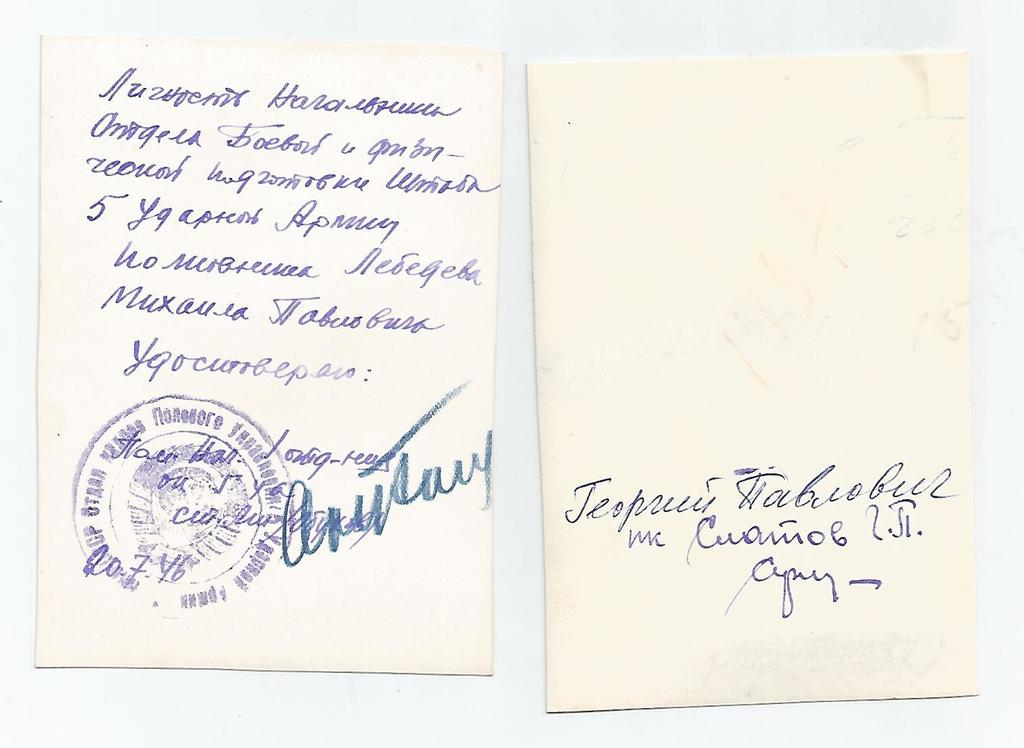 Личность Начальника
Отдела Боевой и физи-
ческой подготовки Штаба
5 Ударной Армии
Полковника Лебедева
Михаила Павловича
Удостоверяю:
Пом. Нач. 1 отд-ния
ок 5 уа
20-7-46
Отдел кадров Полевого Управления Ударной Армии
Георгий Павлович
пк Слатов Г.П.